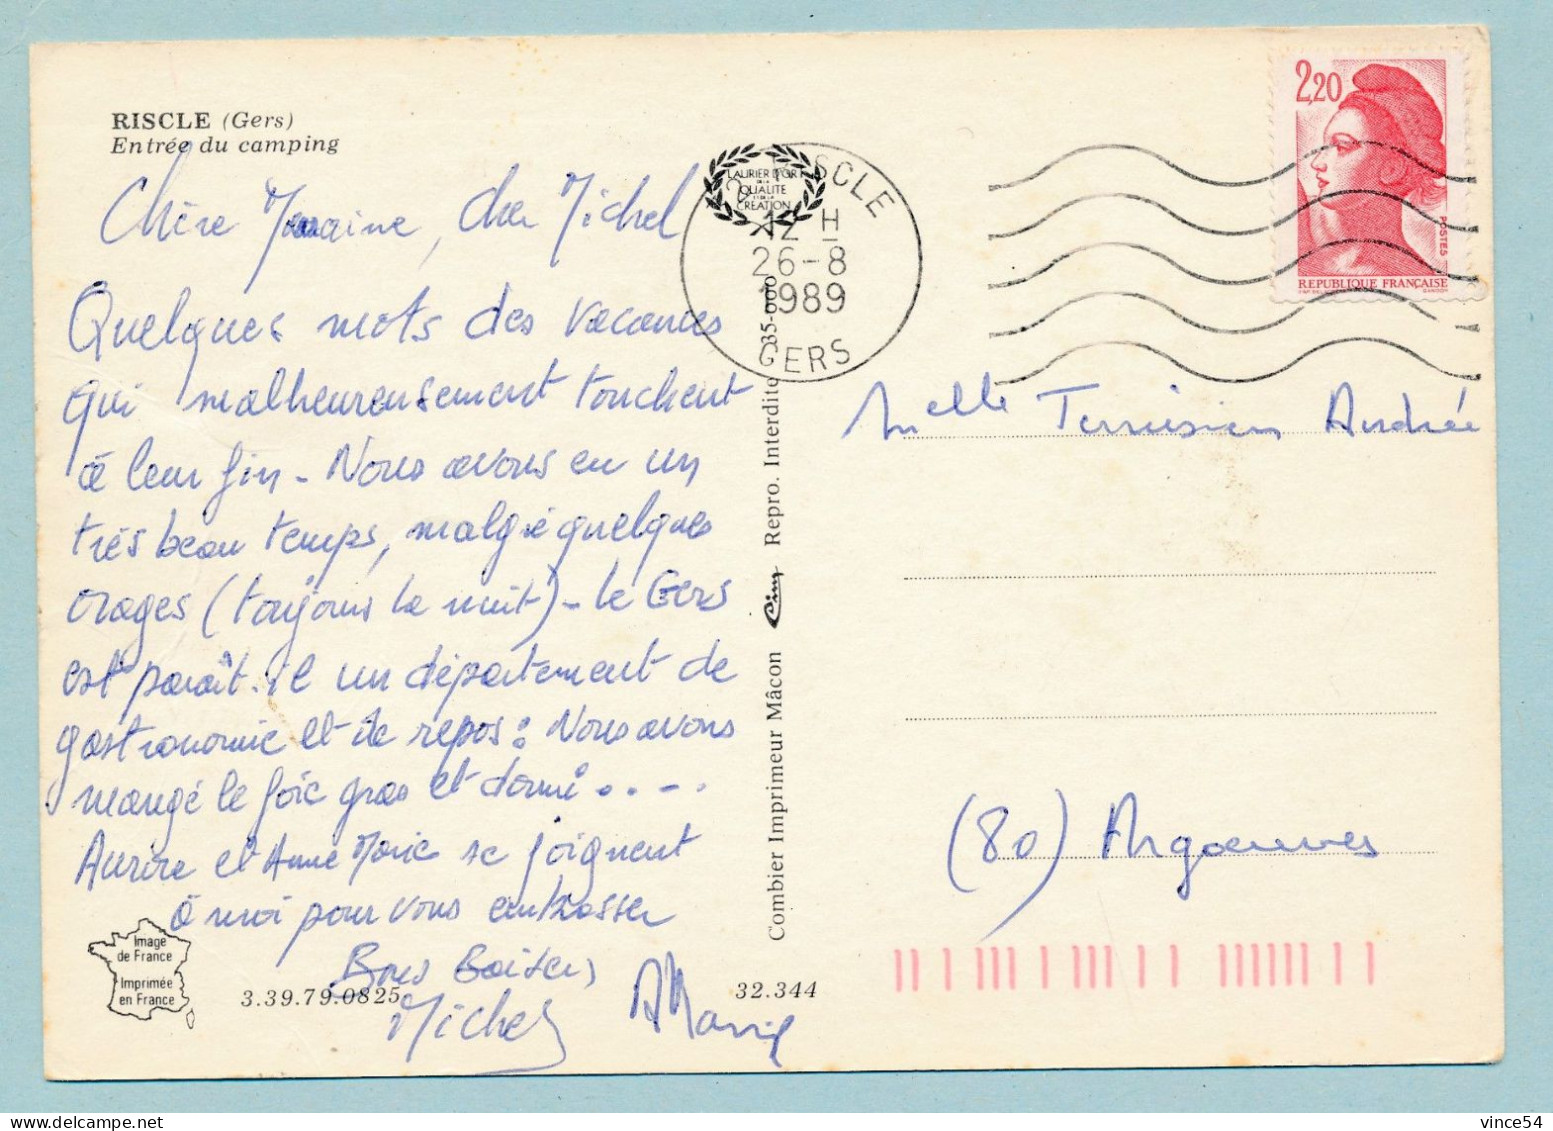 RISCLE (Gers)
Entrée du camping
Chère Marraine, cher Michel
Quelques mots des vacances
qui malheureusement touchent
à leur fin - Nous avons eu un
très beau temps, malgré quelques
orages (toujours la nuit) - le Gers
est paraît-il un département de
gastronomie et de repos : Nous avons
mangé le foie gras et dormi.....
et Anne Marie se joignent
à moi pour vous embrasser
Bons Baisers
Michel
AMarie
Image
de France
Imprimée
en France
3.39.79.0825
32.344
Combier Imprimeur Mâcon Cim Repro. Interdite 35-000
LAURIER D'OR
DE LA
QUALITÉ
ET DE LA
CRÉATION
RISCLE
12 H
26-8
1989
GERS
2,20
POSTES
REPUBLIQUE FRANÇAISE
GANDON
Melle Andrée
(80) Argoeuves
vince54